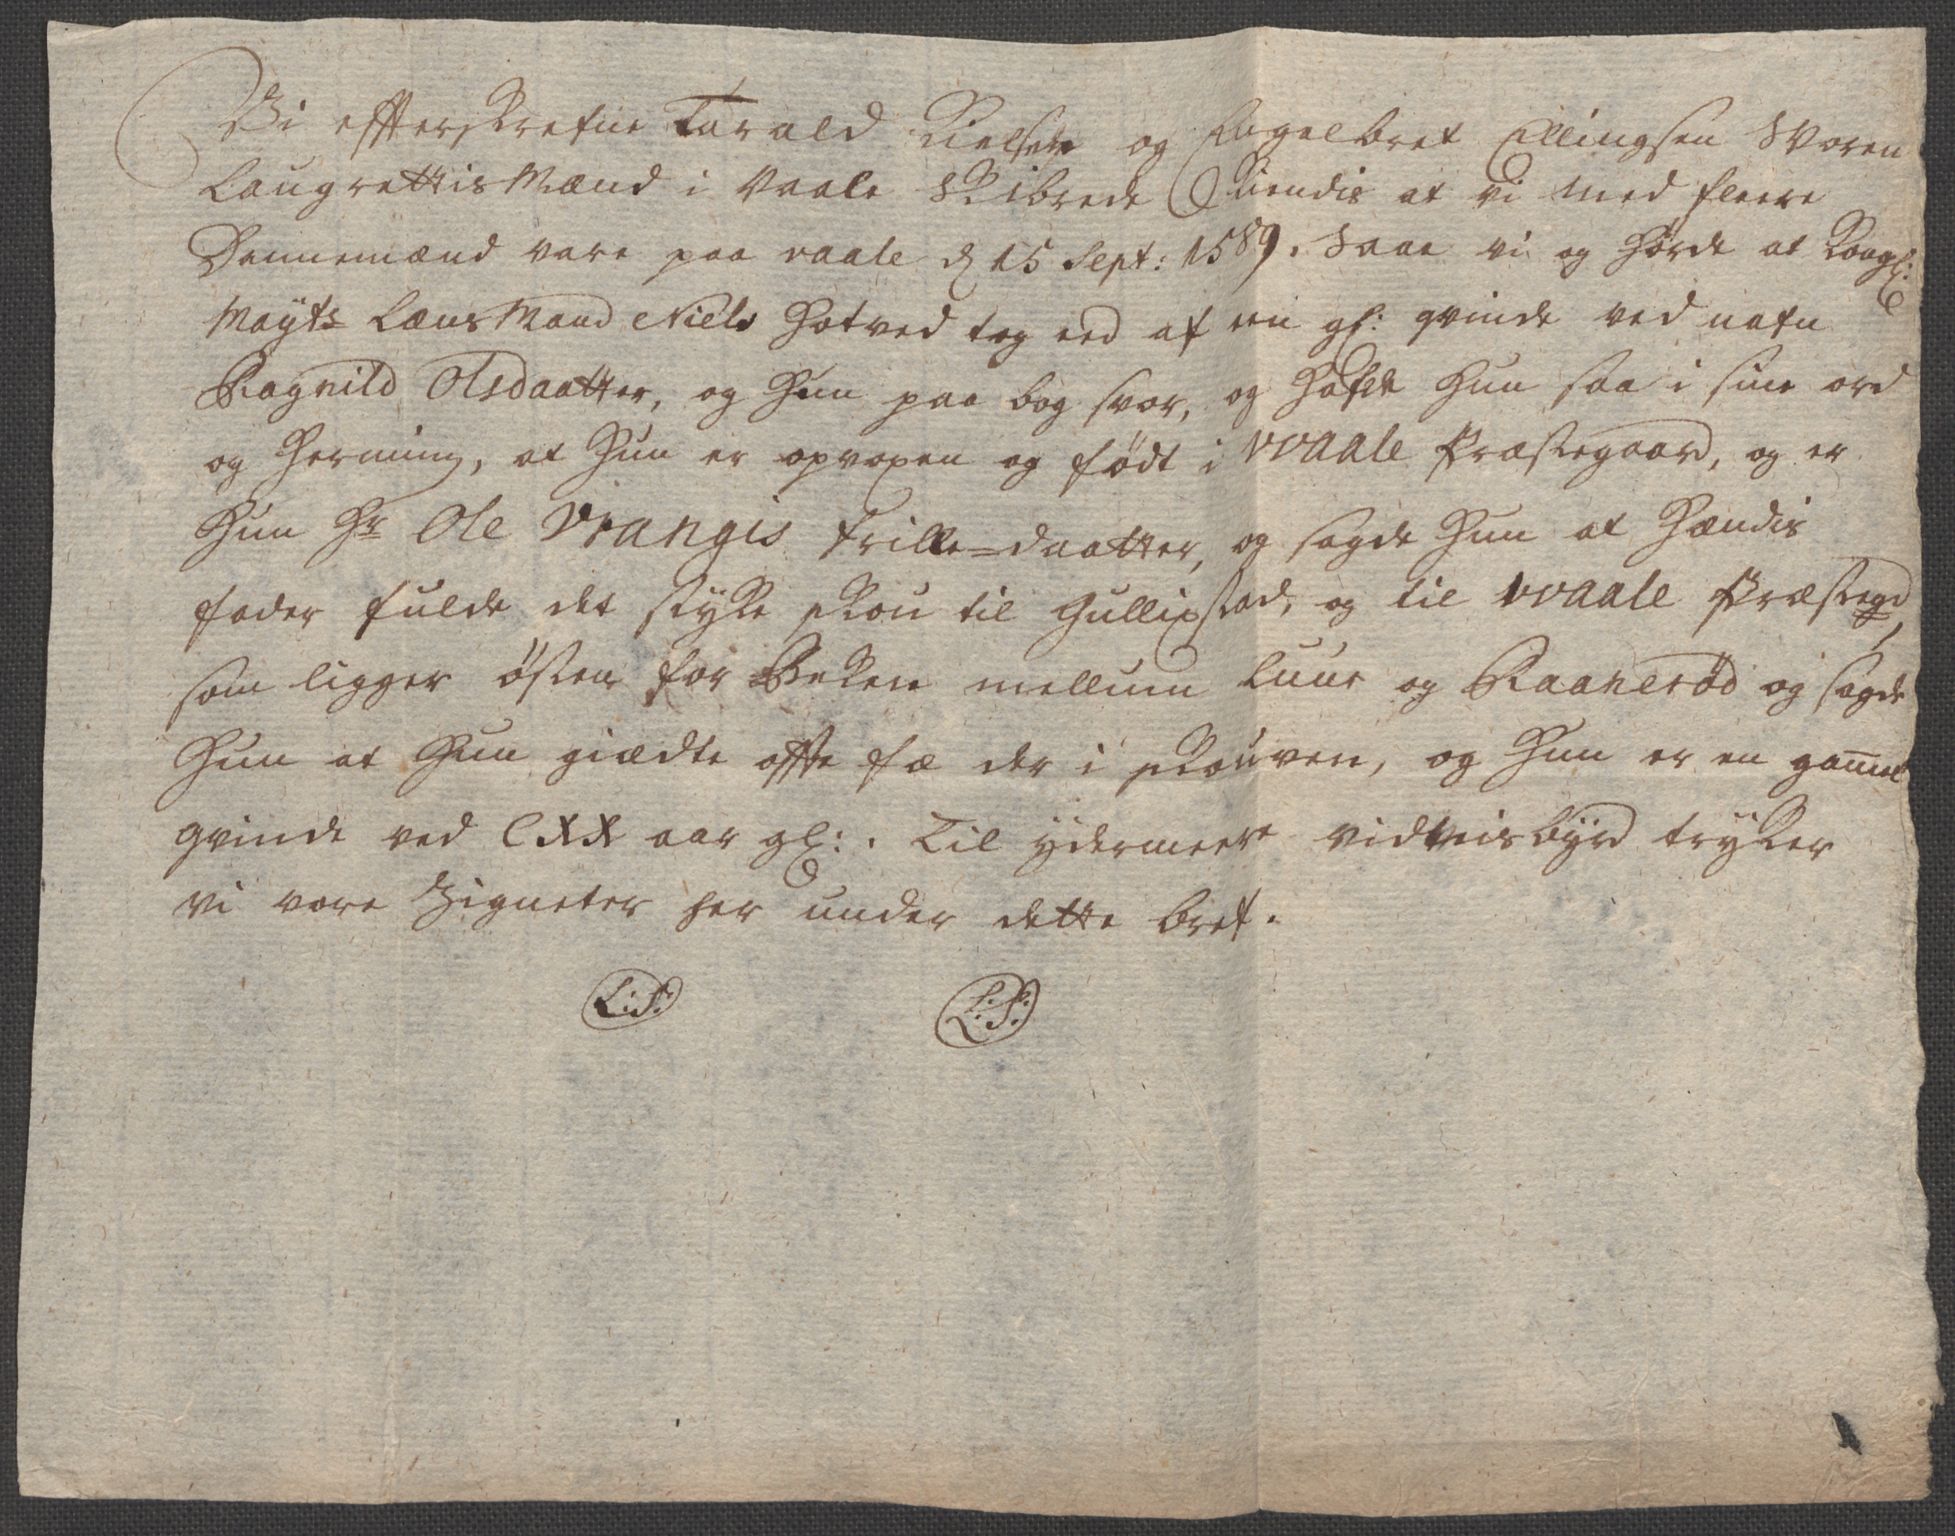 Vi effterskrefne Tarald Nielsen og Engelbret Ellingsen Svoren
LaugrettisMænd i Vaale Skibrede Kiendis at vi med fleere
Dannemænd vare paa vaale d 15 Sept: 1589. Saae vi og hörde at Kongl:
Mayts LænsMand Niels Hotved tog eed af een gl: qvinde ved nafn
Ragnild Olsdaatter, og Hun paa bog svor, og Hafde Hun saa i sine ord
og Herming, at Hun er opvoxen og födt i Waale Præstegaard, og er
Hun Hr Ole Vrangis Frille-daatter, og sagde Hun at Hændis
fader fulde det styke skou til Gullixstad, og til Waale Præstegd
som ligger östen for Beken mellum Luur og Raanerød og sagde
Hun at Hun giædte offte fæ der i skouven, og Hun er en gammel
qvinde ved CXX aar gl:. Til ydermeere vidnisbyrd tryker
vi vore Zigneter her under dette bref.
L:S: L:S: